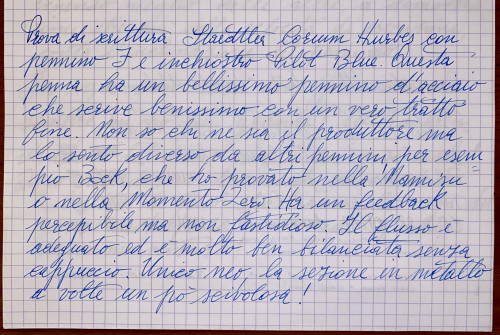 Prova di scrittura Staedtler Corium Hurbes con
pennino F e inchiostro Pilot Blue. Questa
penna ha un bellissimo pennino d'acciaio
che scrive benissimo con un vero tratto
fine. Non so chi ne sia il produttore ma
lo sento diverso da altri pennini, per esem=
pio Bock, che ho provato nella Mamisu
o nella Momento Zero. Ha un feedback
percepibile ma non fastidioso. Il flusso è
adeguato ed è molto ben bilanciata senza
cappuccio. Unico neo, la sezione in metallo
a volte un pò scivolosa!